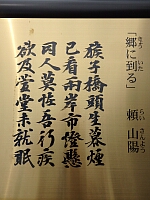 「郷に到る」 頼 山陽
きょう いた らい さんよう
篠子橋頭生暮煙
已看両岸市燈懸
同人莫佐吾行疾
欲及萱堂未就眠